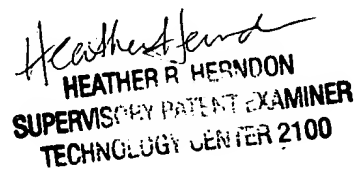 Heather Herndon
HEATHER R. HERNDON
SUPERVISORY PATENT EXAMINER
TECHNOLOGY CENTER 2100